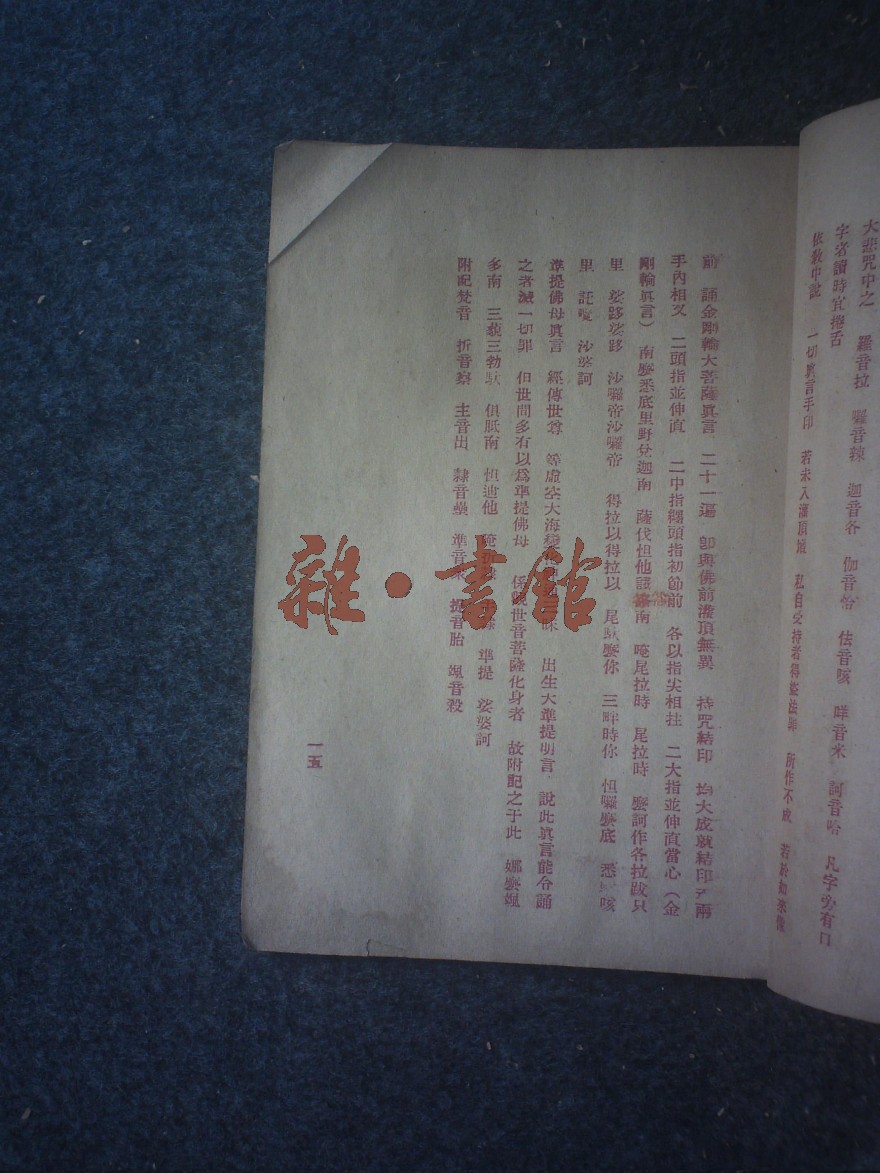 大悲咒中之　羅音拉　囉音辣　迦音各　伽音　怯音咳　哶音米　訶音哈　凡字旁有口
字者讀時宜捲舌
依敎中說　一切眞言手印　若未入灌頂壇　私自受持者得盜法罪　所作不成　若於如來像
前　誦金剛輪大菩薩眞言　二十一遍　卽與佛前灌頂無異　持咒結印　均大成就結印　兩
手內相叉　二頭指並伸直　二中指纏頭指初節前　各以指尖相拄　二大指並伸直當心（金
剛輪眞言）　南無悉底里野兌迦南　薩伐怛他南　唵尾拉時　尾拉時　訶作各拉跋只
里　娑哆娑哆　沙囉帝沙囉帝　得拉以得拉以　尾你　三時你　怛囉底　悉咳
里　訖　沙婆訶
準提佛母眞言　經傳世尊　等虛空大海　出生大準提明言　說此眞言能令誦
之者滅一切罪　但世間多有以爲準提佛母　係觀世音菩薩化身者　故附記之于此　娜颯
多南　三藐三勃馱　俱胝南　怛迪他　準提　娑婆訶
附記梵音　折音察　主音出　隸音壘　準音　提音胎　颯音殺
一五
雜・書館